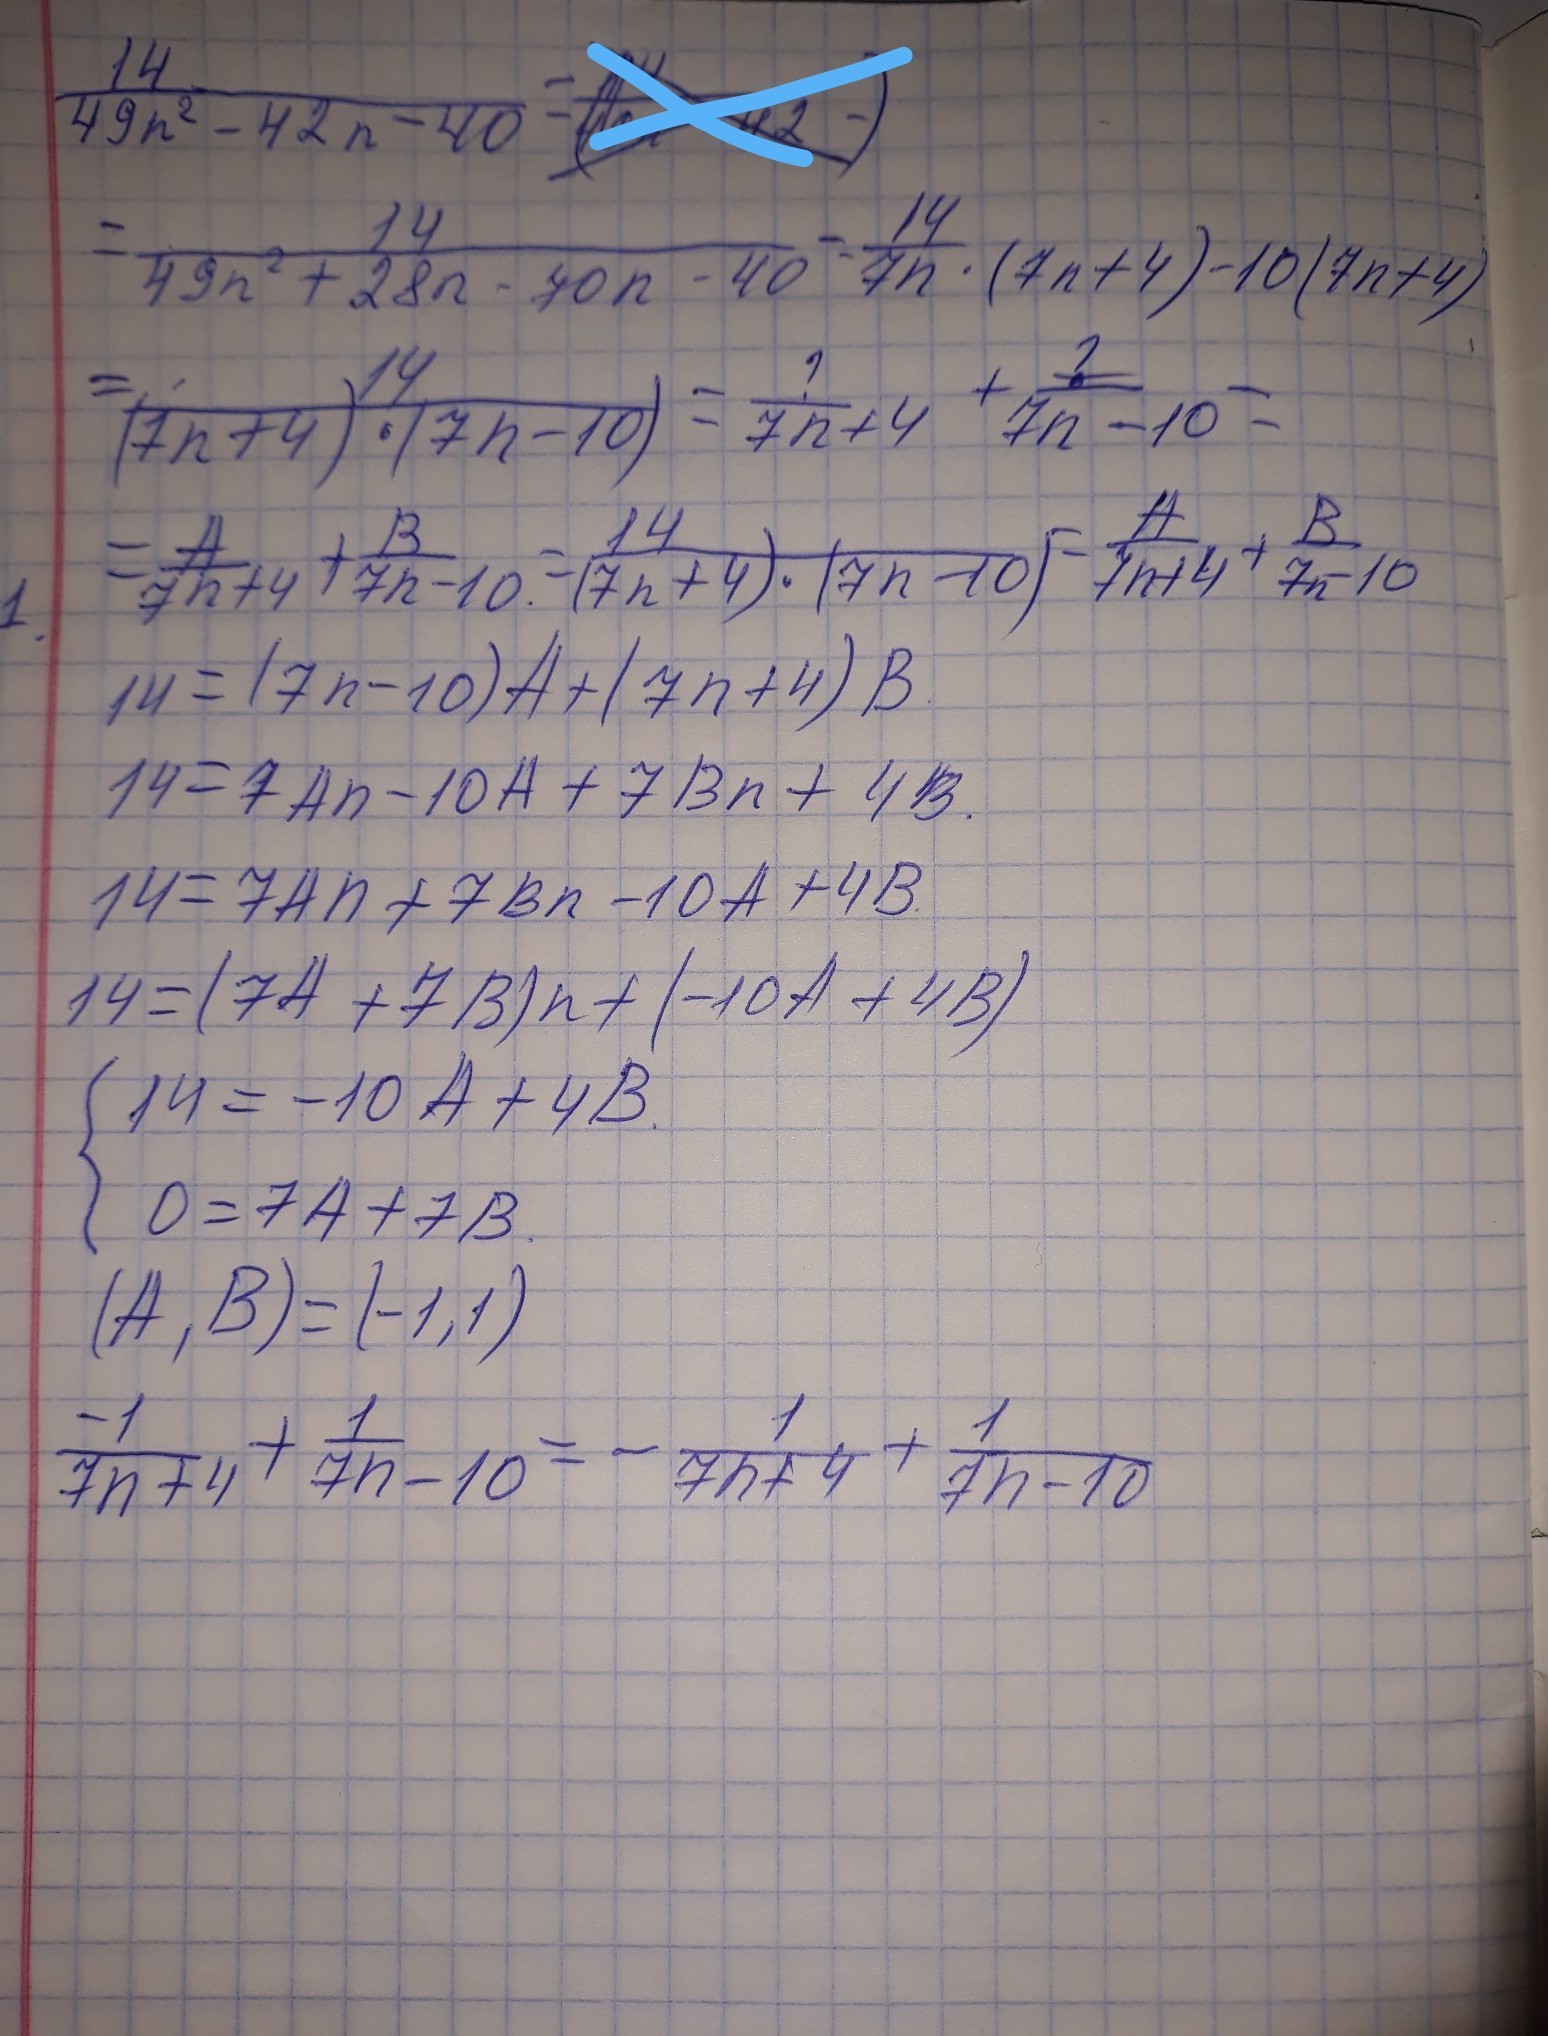 14/(49n² - 42n - 40) =
= 14/(49n² + 28n - 70n - 40) = 14/7n · (7n+4) - 10(7n+4)
= 14/((7n+4)·(7n-10)) = ?/(7n+4) + ?/(7n-10) =
= A/(7n+4) + B/(7n-10) = 14/((7n+4)·(7n-10)) = A/(7n+4) + B/(7n-10)
1.
14=(7n-10)A+(7n+4)B.
14=7An-10A+7Bn+4B.
14=7An+7Bn-10A+4B.
14=(7A+7B)n+(-10A+4B)
{14=-10A+4B.
0=7A+7B.
(A,B)=(-1,1)
-1/(7n+4) + 1/(7n-10) = - 1/(7n+4) + 1/(7n-10)